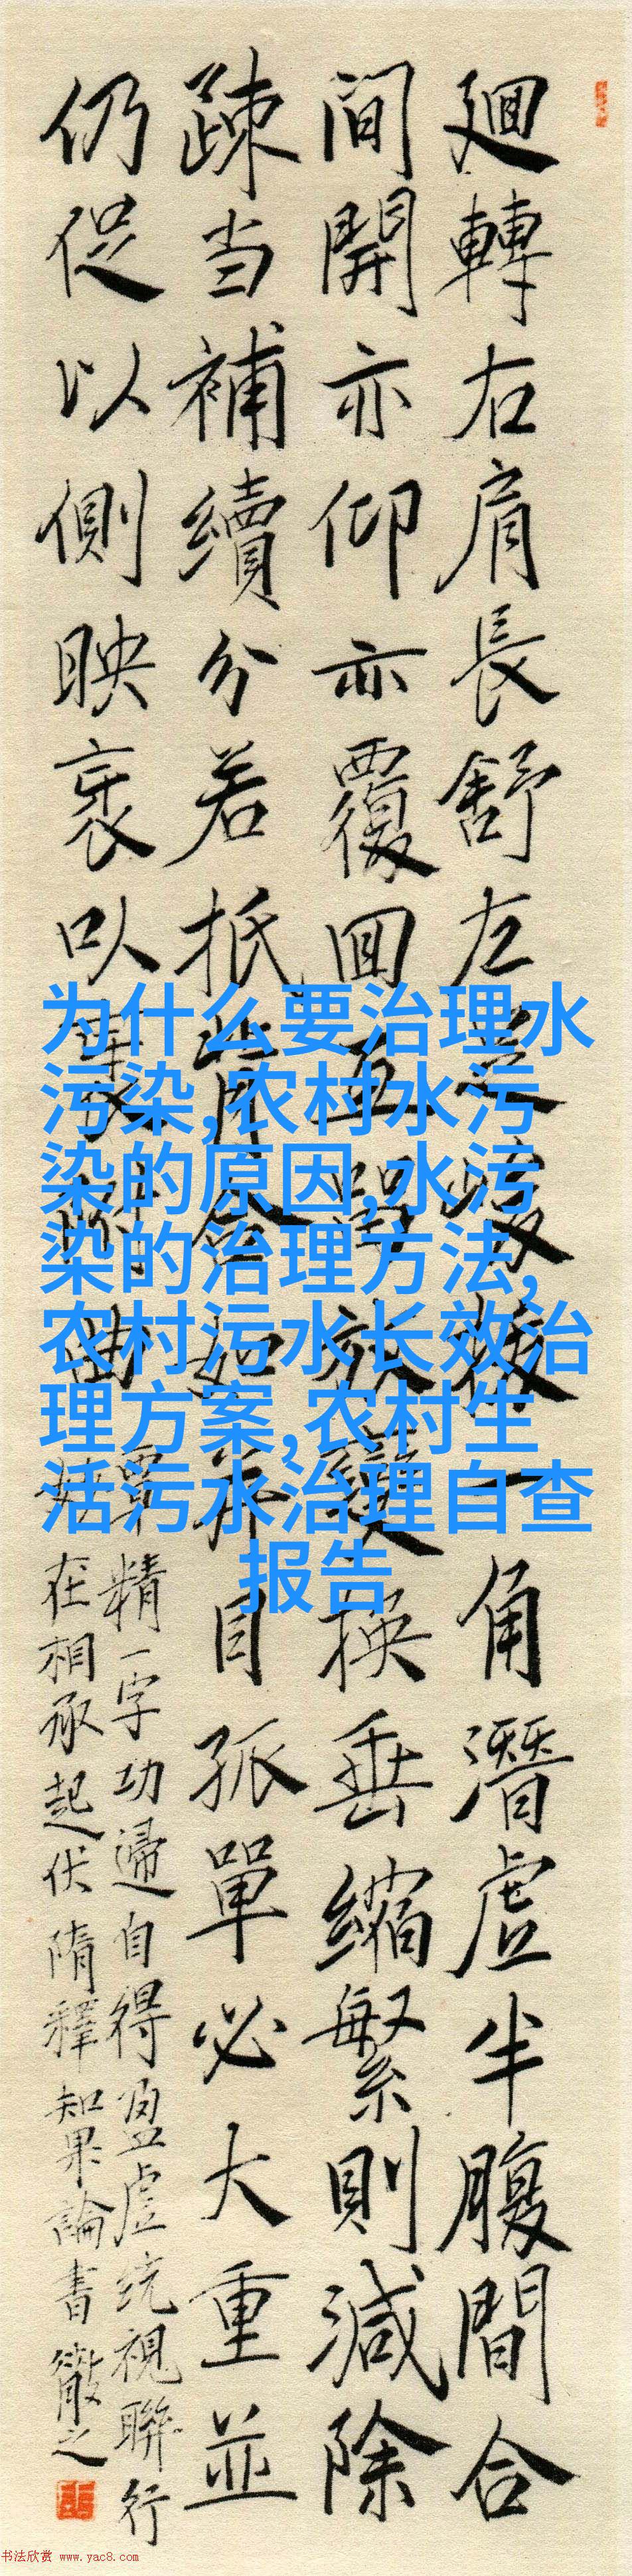 廻轉右肩長舒左足峻拔一角潛虛半腹間合
間開亦仰亦覆回互留放變換垂縮繁則減除
疎当補續分若抵背合如并目孤單必大重並
仍促以側映衺以附曲
覃精一字功歸自得盈虛統視聯行
妙在相承起伏隋釋知果論書
为什么要治理水
污染,农村水污
染的原因,水污
染的治理方法,
农村污水长效治
理方案,农村生
活污水治理自查
报告
书法欣赏 www.yac8.com